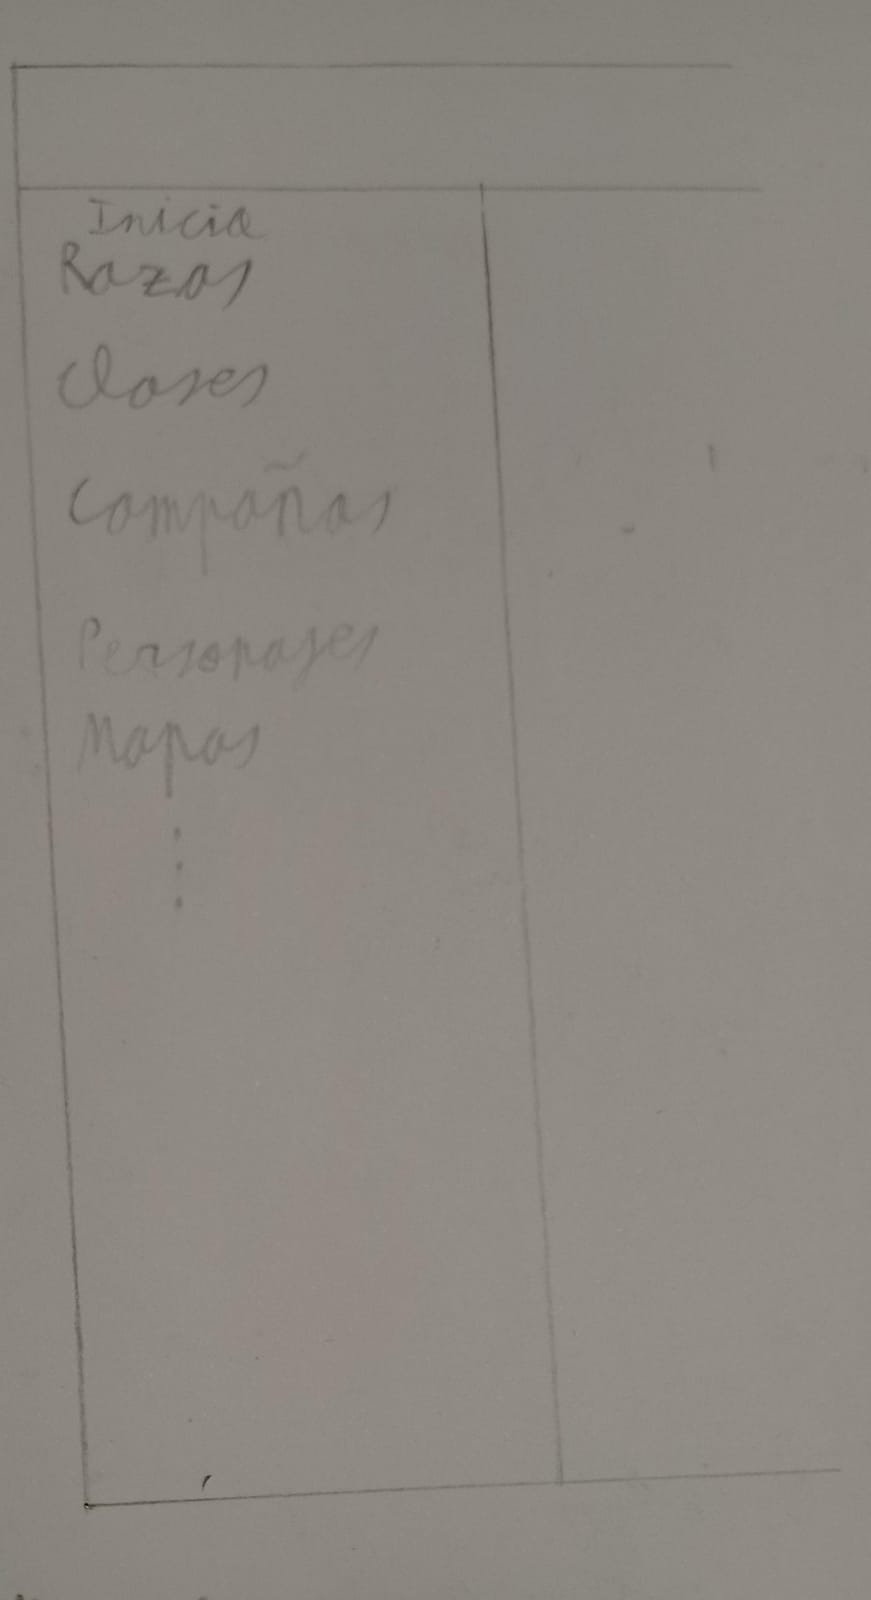 Inicio
Razas
Clases
Campañas
Personajes
Mapas